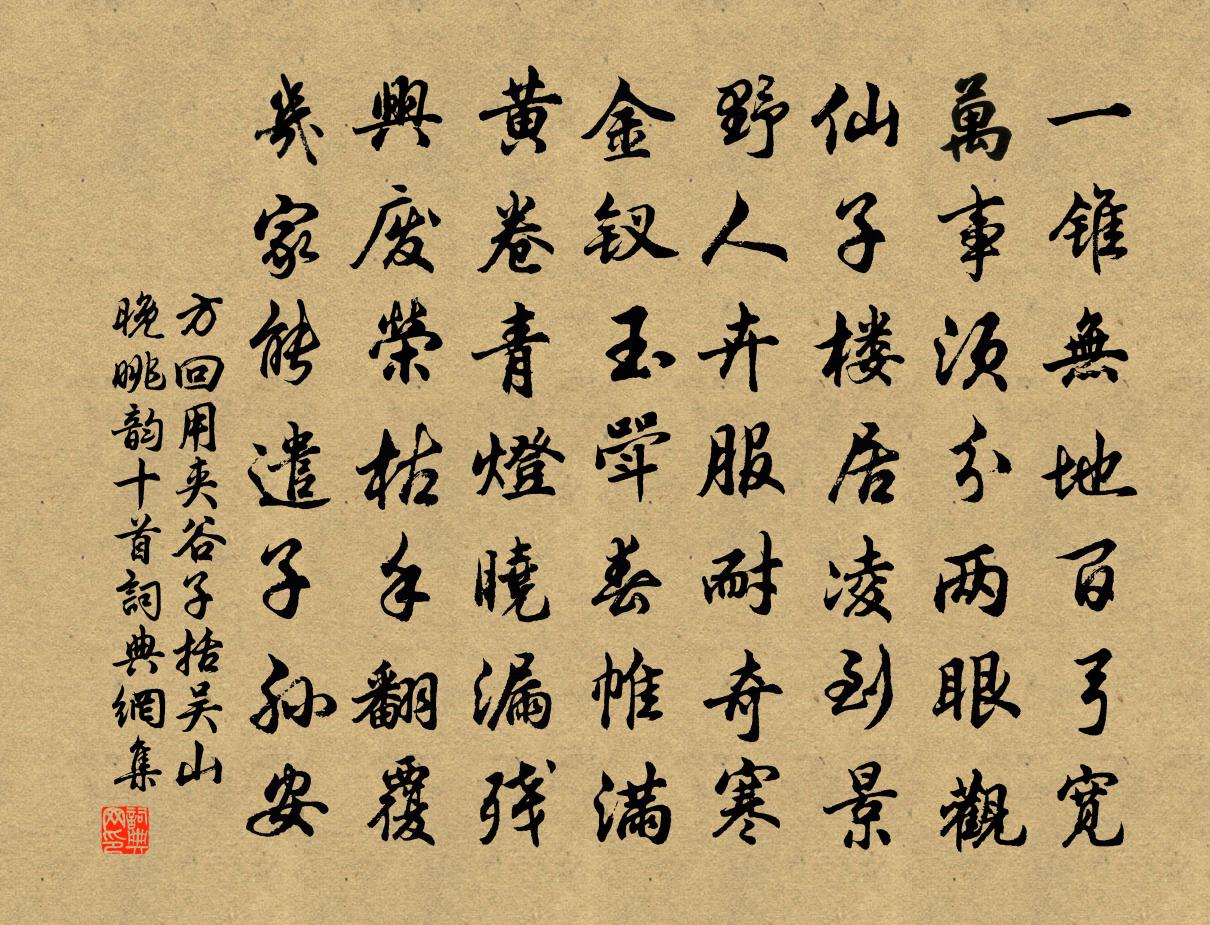 一錐無地百弓寬
萬事須分兩眼觀
仙子楼居凌到景
野人卉服耐奇寒
金釵玉斝春帷滿
黄卷青燈曉漏残
興废榮枯手翻覆
幾家能遣子孫安
方回用夹谷子括吴山
晚眺韵十首詞典網集
詞典网印